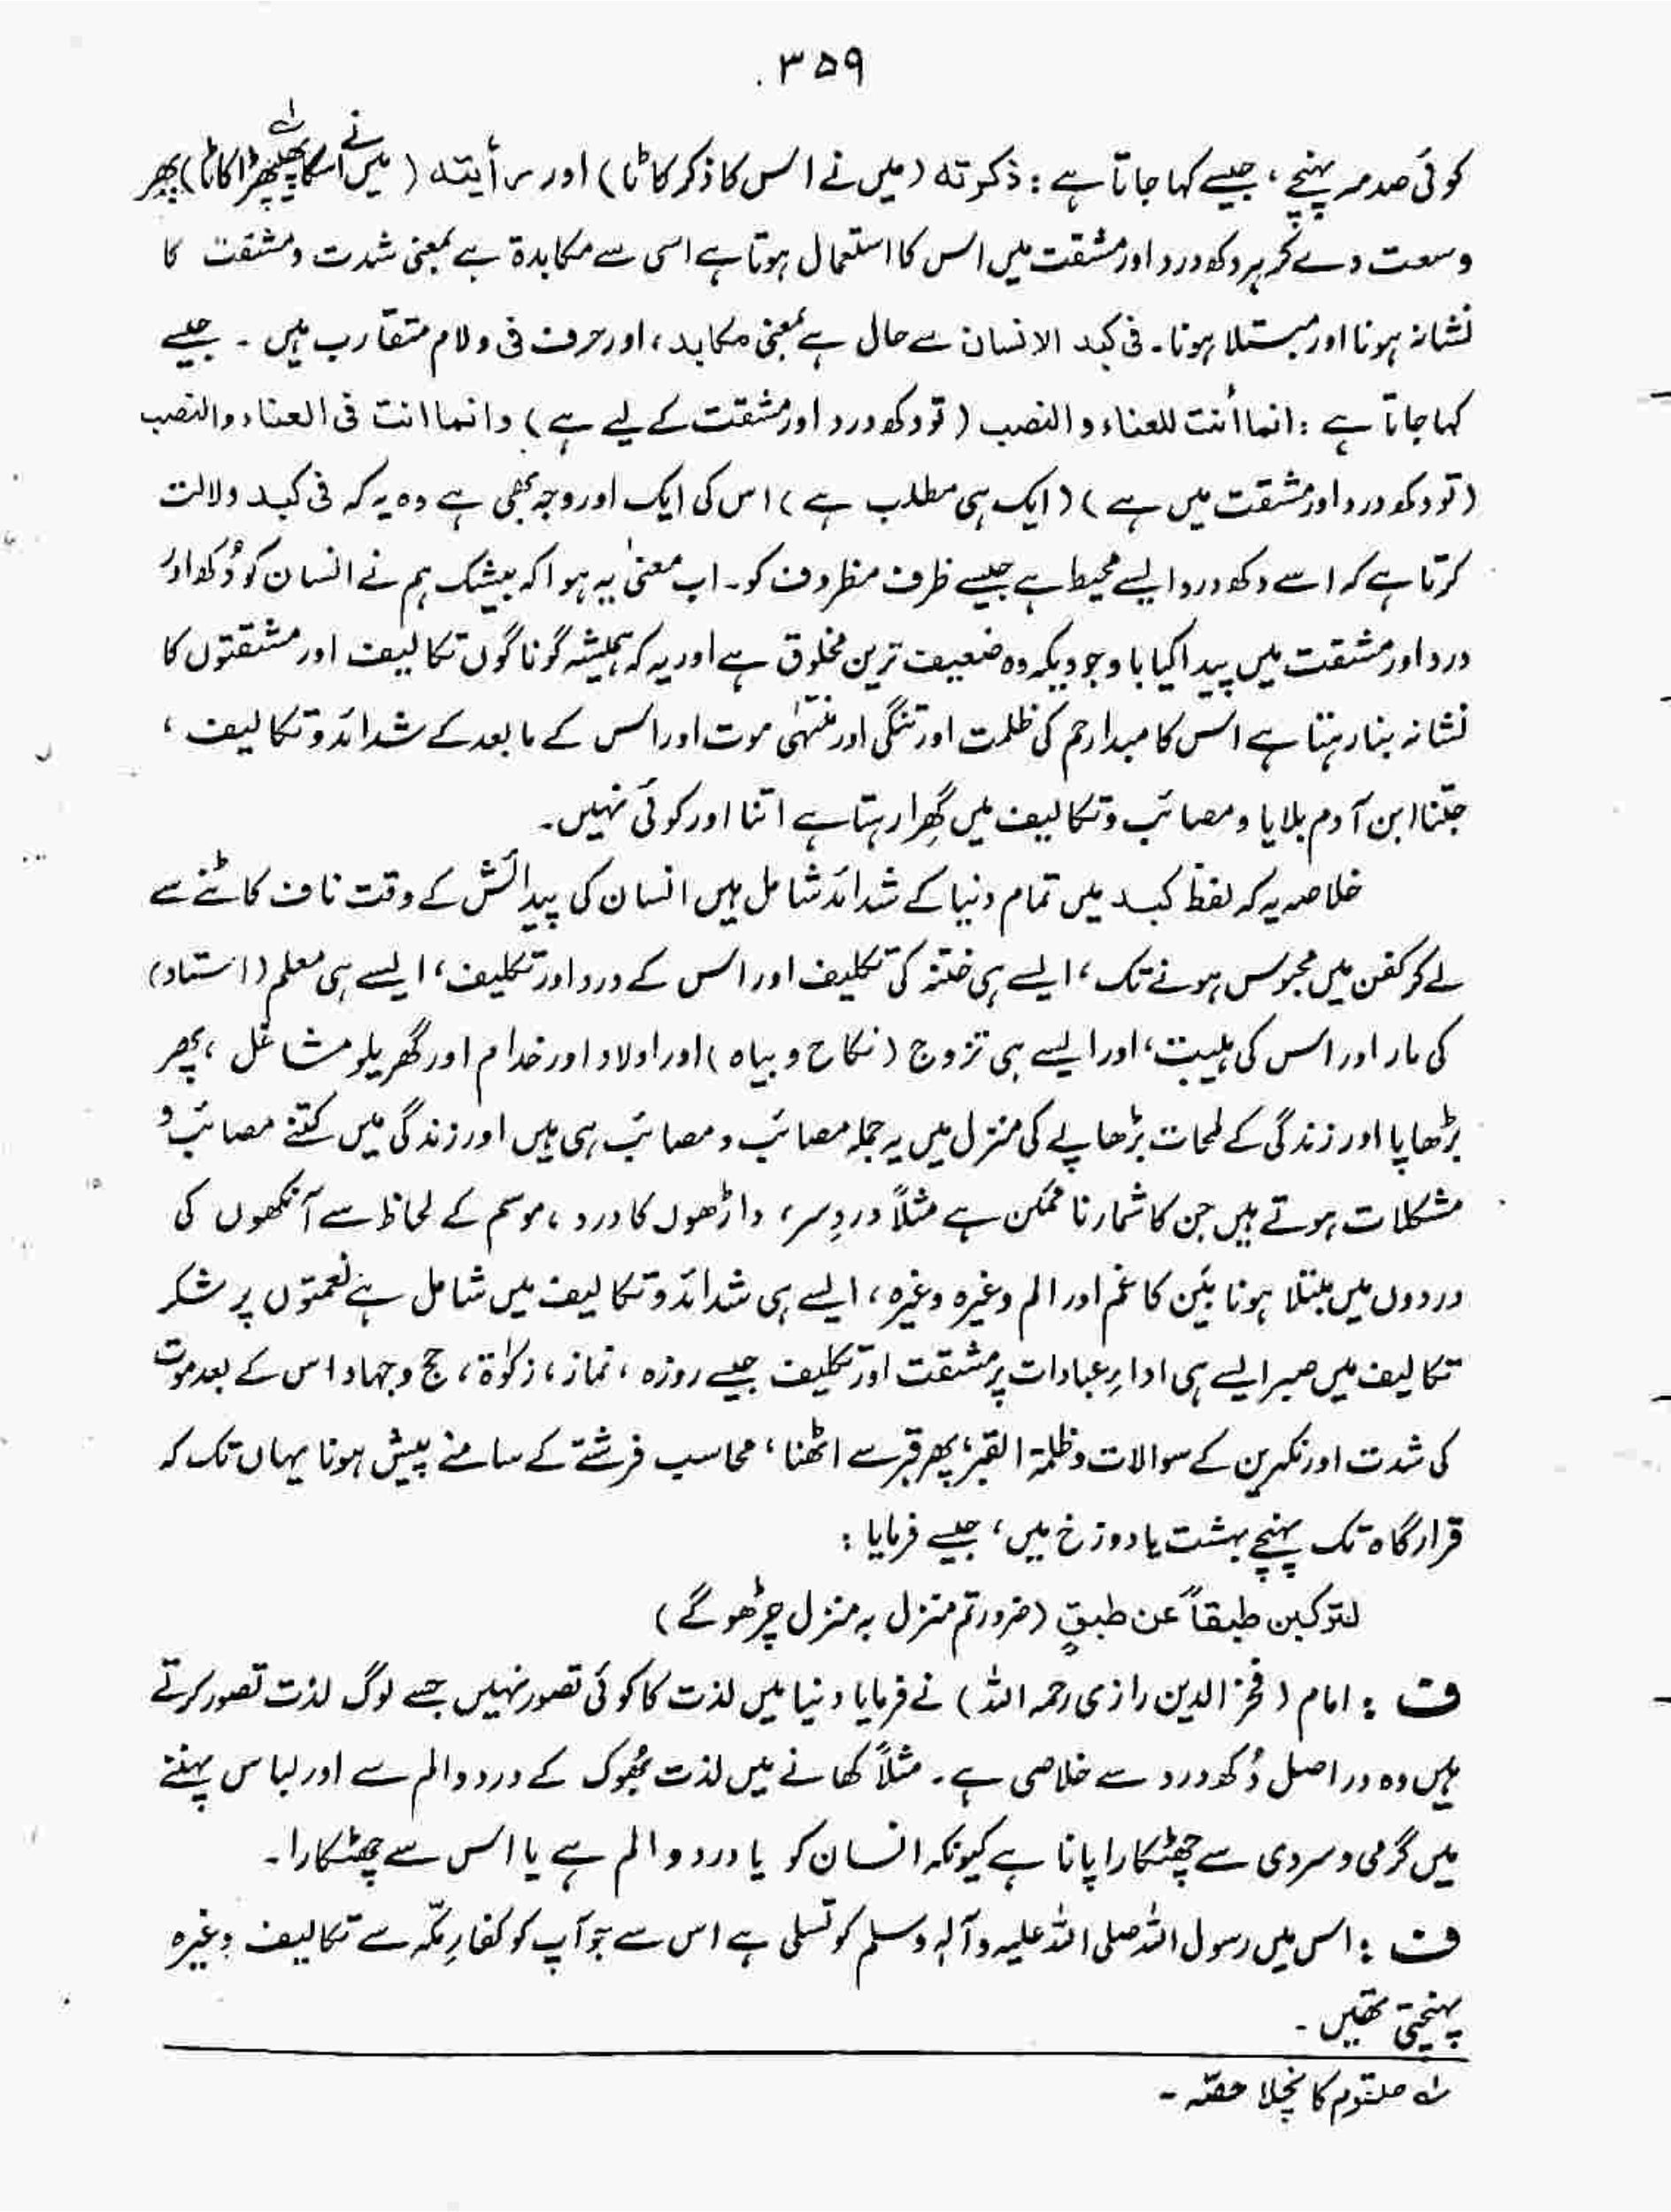 ۳۵۹
کوئی صدمہ پہنچے ، جیسے کہا جاتا ہے : ذکرته (میں نے اس کا ذکر کاٹا) اور رأیته ( میں نے اسکا پھیپھڑا کاٹا)ؔ پھر
وسعت دے کر ہر دکھ درد اور مشقت میں اس کا استعمال ہوتا ہے اسی سے مکابدۃ ہے بمعنی شدت و مشقت کا
نشانہ ہونا اور مبتلا ہونا۔ فی کبد الانسان سے حال ہے بمعنی مکابد ، اور حرف فی و لام متقارب ہیں ۔ جیسے
کہا جاتا ہے : انما أنت للعناء و النصب ( تو دکھ درد اور مشقت کے لیے ہے ) و انما انت فی العناء و النصب
( تو دکھ درد اور مشقت میں ہے ) ( ایک ہی مطلب ہے ) اس کی ایک اور وجہ بھی ہے وہ یہ کہ فی کبد دلالت
کرتا ہے کہ اسے دکھ درد ایسے محیط ہے جیسے ظرف مظروف کو۔ اب معنیٰ یہ ہوا کہ بیشک ہم نے انسان کو دُکھ اور
درد اور مشقت میں پیدا کیا باوجودیکہ وہ ضعیف ترین مخلوق ہے اور یہ کہ ہمیشہ گوناگوں تکالیف اور مشقتوں کا
نشانہ بنا رہتا ہے اس کا مبدا رحم کی ظلمت اور تنگی اور منتہٰی موت اور اس کے مابعد کے شدائد و تکالیف ،
جتنا ابن آدم بلایا و مصائب و تکالیف میں گھرا رہتا ہے اتنا اور کوئی نہیں۔
خلاصہ یہ کہ لفظ کبد میں تمام دنیا کے شدائد شامل ہیں انسان کی پیدائش کے وقت ناف کاٹنے سے
لے کر کفن میں محبوس ہونے تک ، ایسے ہی ختنہ کی تکلیف اور اس کے درد اور تکلیف ، ایسے ہی معلم (استاد)
کی مار اور اس کی ہیبت ، اور ایسے ہی تزوج ( نکاح و بیاہ ) اور اولاد اور خدام اور گھریلو مشاغل ، پھر
بڑھاپا اور زندگی کے لمحات بڑھاپے کی منزل میں یہ جملہ مصائب و مصائب ہی ہیں اور زندگی میں کتنے مصائب و
مشکلات ہوتے ہیں جن کا شمار ناممکن ہے مثلاً دردِ سر ، داڑھوں کا درد ، موسم کے لحاظ سے آنکھوں کی
دردوں میں مبتلا ہونا بَین کا غم اور الم وغیرہ وغیرہ ، ایسے ہی شدائد و تکالیف میں شامل ہے نعمتوں پر شکر
تکالیف میں صبر ایسے ہی اداءِ عبادات پر مشقت اور تکلیف جیسے روزہ ، نماز ، زکوٰۃ ، حج و جہاد اس کے بعد موت
کی شدت اور نکیرین کے سوالات و ظلمۃ القبر ، پھر قبر سے اٹھنا ، محاسب فرشتے کے سامنے پیش ہونا یہاں تک کہ
قرار گاہ تک پہنچے بہشت یا دوزخ میں ، جیسے فرمایا :
لترکبن طبقاً عن طبقٍ (ضرور تم منزل بہ منزل چڑھو گے )
ف : امام ( فخر الدین رازی رحمہ اللہ ) نے فرمایا دنیا میں لذت کا کوئی تصور نہیں جسے لوگ لذت تصور کرتے
ہیں وہ دراصل دُکھ درد سے خلاصی ہے۔ مثلاً کھانے میں لذت بُھوک کے درد و الم سے اور لباس پہننے
میں گرمی و سردی سے چھٹکارا پانا ہے کیونکہ انسان کو یا درد و الم ہے یا اس سے چھٹکارا۔
ف : اس میں رسول اللہ صلی اللہ علیہ و آلہٖ وسلم کو تسلی ہے اس سے جو آپ کو کفارِ مکّہ سے تکالیف وغیرہ
پہنچتی تھیں ۔
لہ حلقوم کا نچلا حصّہ ۔